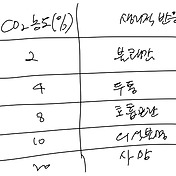 CO₂농도(%) 생리적 반응
2 불쾌감
4 두통
8 호흡곤란
10 의식불명
20 사망